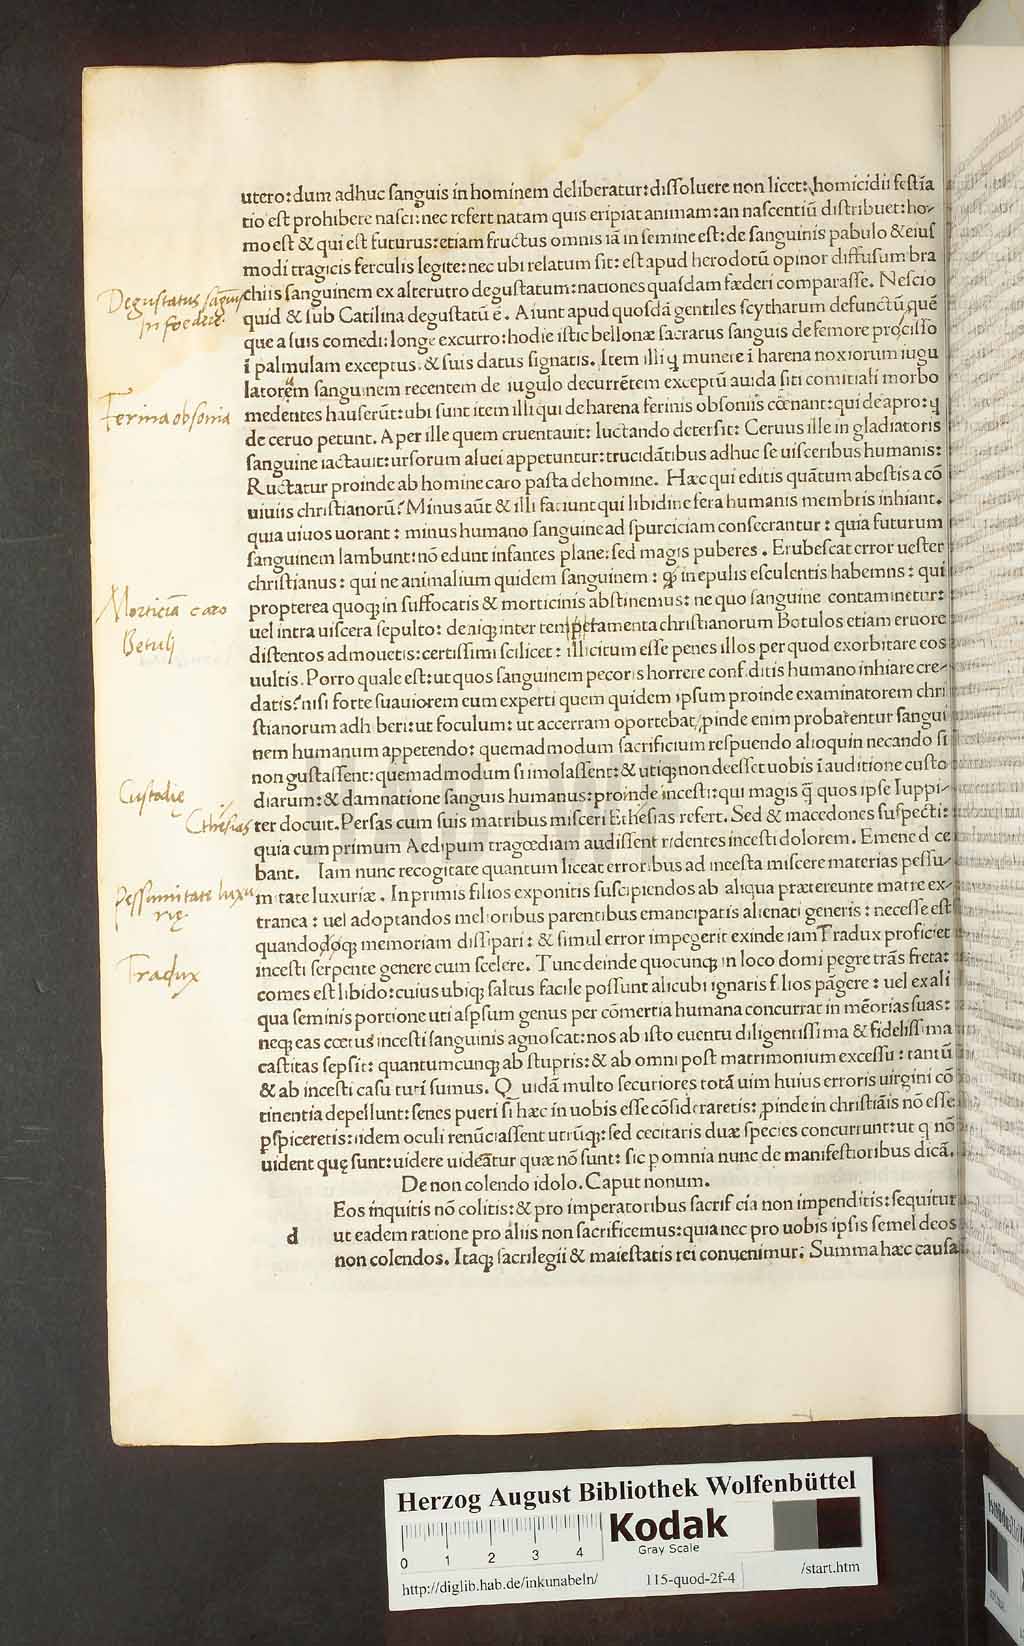 utero: dum adhuc sanguis in hominem deliberatur: dissoluere non licet: homicidii festīa
tio est prohibere nasci: nec refert natam quis eripiat animam: an nascentiū distribuet: ho-
mo est & qui est futurus: etiam fructus omnis iā in semine est: de sanguinis pabulo & eius
modi tragicis ferculis legite: nec ubi relatum sit: est apud herodotū opinor diffusum bra
Degustatus sāguis
chiis sanguinem ex alterutro degustatum: nationes quasdam fæderi comparasse. Nescio
in foedere
quid & sub Catilina degustatū ē. Aiunt apud quosdā gentiles scytharum defunctū quē
que a suis comedi: longe excurro: hodie istic bellonæ sacratus sanguis de femore prociso
ī palmulam exceptus & suis datus signatis. Item illi ꝗ munere ī harena noxiorum iugu
latorem sanguinem recentem de iugulo decurrētem exceptū auida siti comitiali morbo
Ferina obsonia
medentes hauserūt: ubi sunt item illi qui de harena ferinis obsoniis cœnant: qui de apro: ꝗ
de ceruo petunt. Aper ille quem cruentauit: luctando detersit: Ceruus ille in gladiatoris
sanguine iactauit: ursorum aluei appetuntur: trucidātibus adhuc se uisceribus humanis:
Ructatur proinde ab homine caro pasta de homine. Hæc qui editis quātum abestis a cō
uiuiis christianorū? Minus aūt & illi faciunt qui libidine fera humanis membris inhiant.
quia uiuos uorant: minus humano sanguine ad spurciciam consecrantur: quia futurum
sanguinem lambunt: nō edunt infantes plane: sed magis puberes. Erubescat error uester
christianus: qui ne animalium quidem sanguinem: ꝗ in epulis esculentis habemns: qui
Morticīa caro
propterea quoq; in suffocatis & morticinis abstinemus: ne quo sanguine contaminetur:
Betuli
uel intra uiscera sepulto: deniq; inter temptamenta christianorum Botulos etiam eruore
distentos admouetis: certissimi scilicet: illicitum esse penes illos per quod exorbitare eos
uultis. Porro quale est: ut quos sanguinem pecoris horrere confiditis humano inhiare cre-
datis? nisi forte suauiorem eum experti quem quidem ipsum proinde examinatorem chri
stianorum adhiberi: ut foculum: ut accerram oportebat ꝓinde enim probarentur sangui
nem humanum appetendo: quemadmodum sacrificium respuendo alioquin necando si
non gustassent: quemadmodum si imolassent: & utiq; non deesset uobis ī auditione custo
Custodię
diarum: & damnatione sanguis humanus: proinde incesti: qui magis q̄ quos ipse Iuppi-
Cthesias
ter docuit. Persas cum suis matribus misceri Ethesias refert. Sed & macedones suspecti:
quia cum primum Aedipum tragœdiam audissent ridentes incesti dolorem. Emene d ce
bant. Iam nunc recogitate quantum liceat erroribus ad incesta miscere materias pessu-
Pessumitate luxu
mitate luxuriæ. In primis filios exponitis suscipiendos ab aliqua prætereunte matre ex-
rię
tranea: uel adoptandos melioribus parentibus emancipatis alienati generis: necesse est
quandoq; memoriam dissipari: & simul error impegerit exinde iam Tradux proficiet
Tradux
incesti serpente genere cum scelere. Tunc deinde quocunq; in loco domi pegre trās freta:
comes est libido: cuius ubiq; saltus facile possunt alicubi ignaris filios pāgere: uel ex ali
qua seminis portione uti aspsum genus per cōmertia humana concurrat in mēorias suas:
neq; eas cœtus incesti sanguinis agnoscat: nos ab isto euentu diligentissima & fidelissima
castitas sepsit: quantumcunq; ab stupris: & ab omni post matrimonium excessu: tantū
& ab incesti casu tuti sumus. Quidā multo securiores totā uim huius erroris uirgini cō
tinentia depellunt: senes pueri si hæc in uobis esse cōsideraretis: ꝓinde in christiāis nō esse
ꝑspiceretis: iidem oculi renūciassent utrūq;: sed cecitatis duæ species concurrunt: ut q nō
uident quę sunt: uidere uideātur quæ nō sunt: sic ꝑ omnia nunc de manifestioribus dicā.
De non colendo idolo. Caput nonum.
Eos inquitis nō colitis: & pro imperatoribus sacrificia non impenditis: sequitur
d ut eadem ratione pro aliis non sacrificemus: quia nec pro uobis ipsis semel deos
non colendos. Itaq; sacrilegii & maiestatis rei conuenimur: Summa hæc causa
Herzog August Bibliothek Wolfenbüttel
0 1 2 3 4
Kodak
Gray Scale
http://diglib.hab.de/inkunabeln/ 115-quod-2f-4 /start.htm